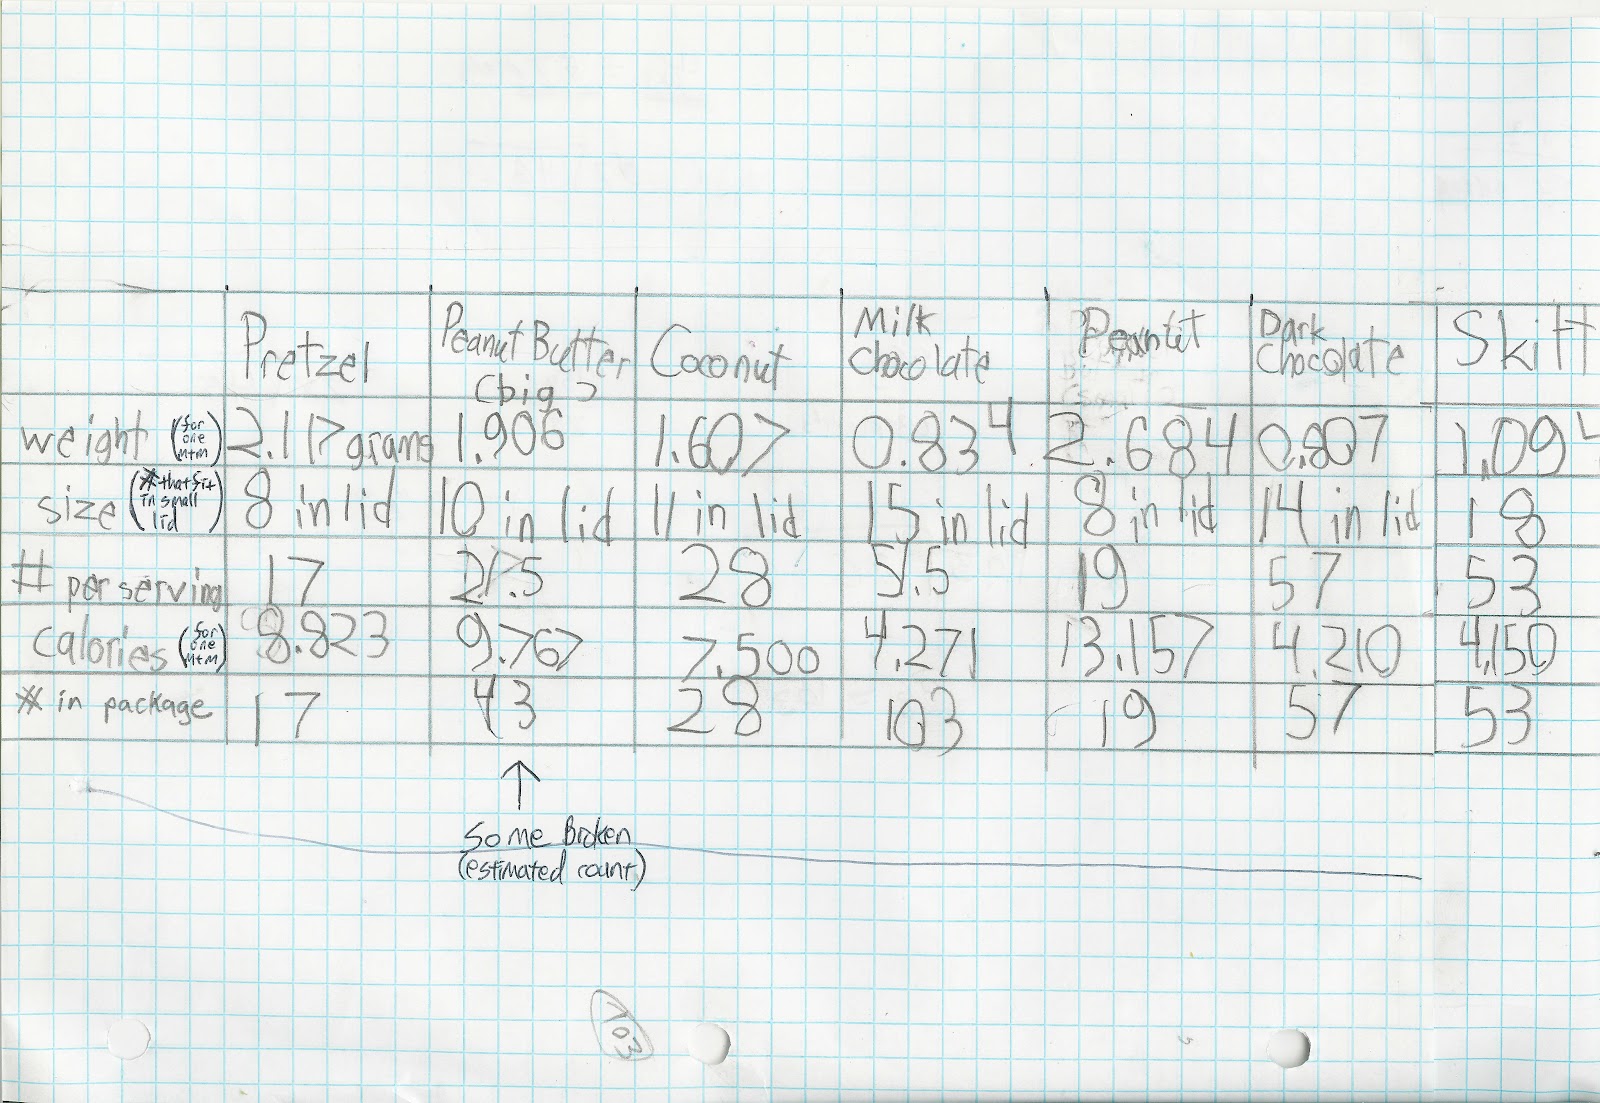 Pretzel Peanut Butter (big) Coconut Milk Chocolate Peanut Dark Chocolate Skitt
weight (for one M+M) 2.117 grams 1.906 1.607 0.834 2.684 0.807 1.094
size (# that fit in small lid) 8 in lid 10 in lid 11 in lid 15 in lid 8 in lid 14 in lid 18
# per serving 17 21.5 28 51.5 19 57 53
calories (for one M+M) 8.823 9.767 7.500 4.271 13.157 4.210 4.150
# in package 17 43 28 103 19 57 53
↑
Some Broken
(estimated count)
103